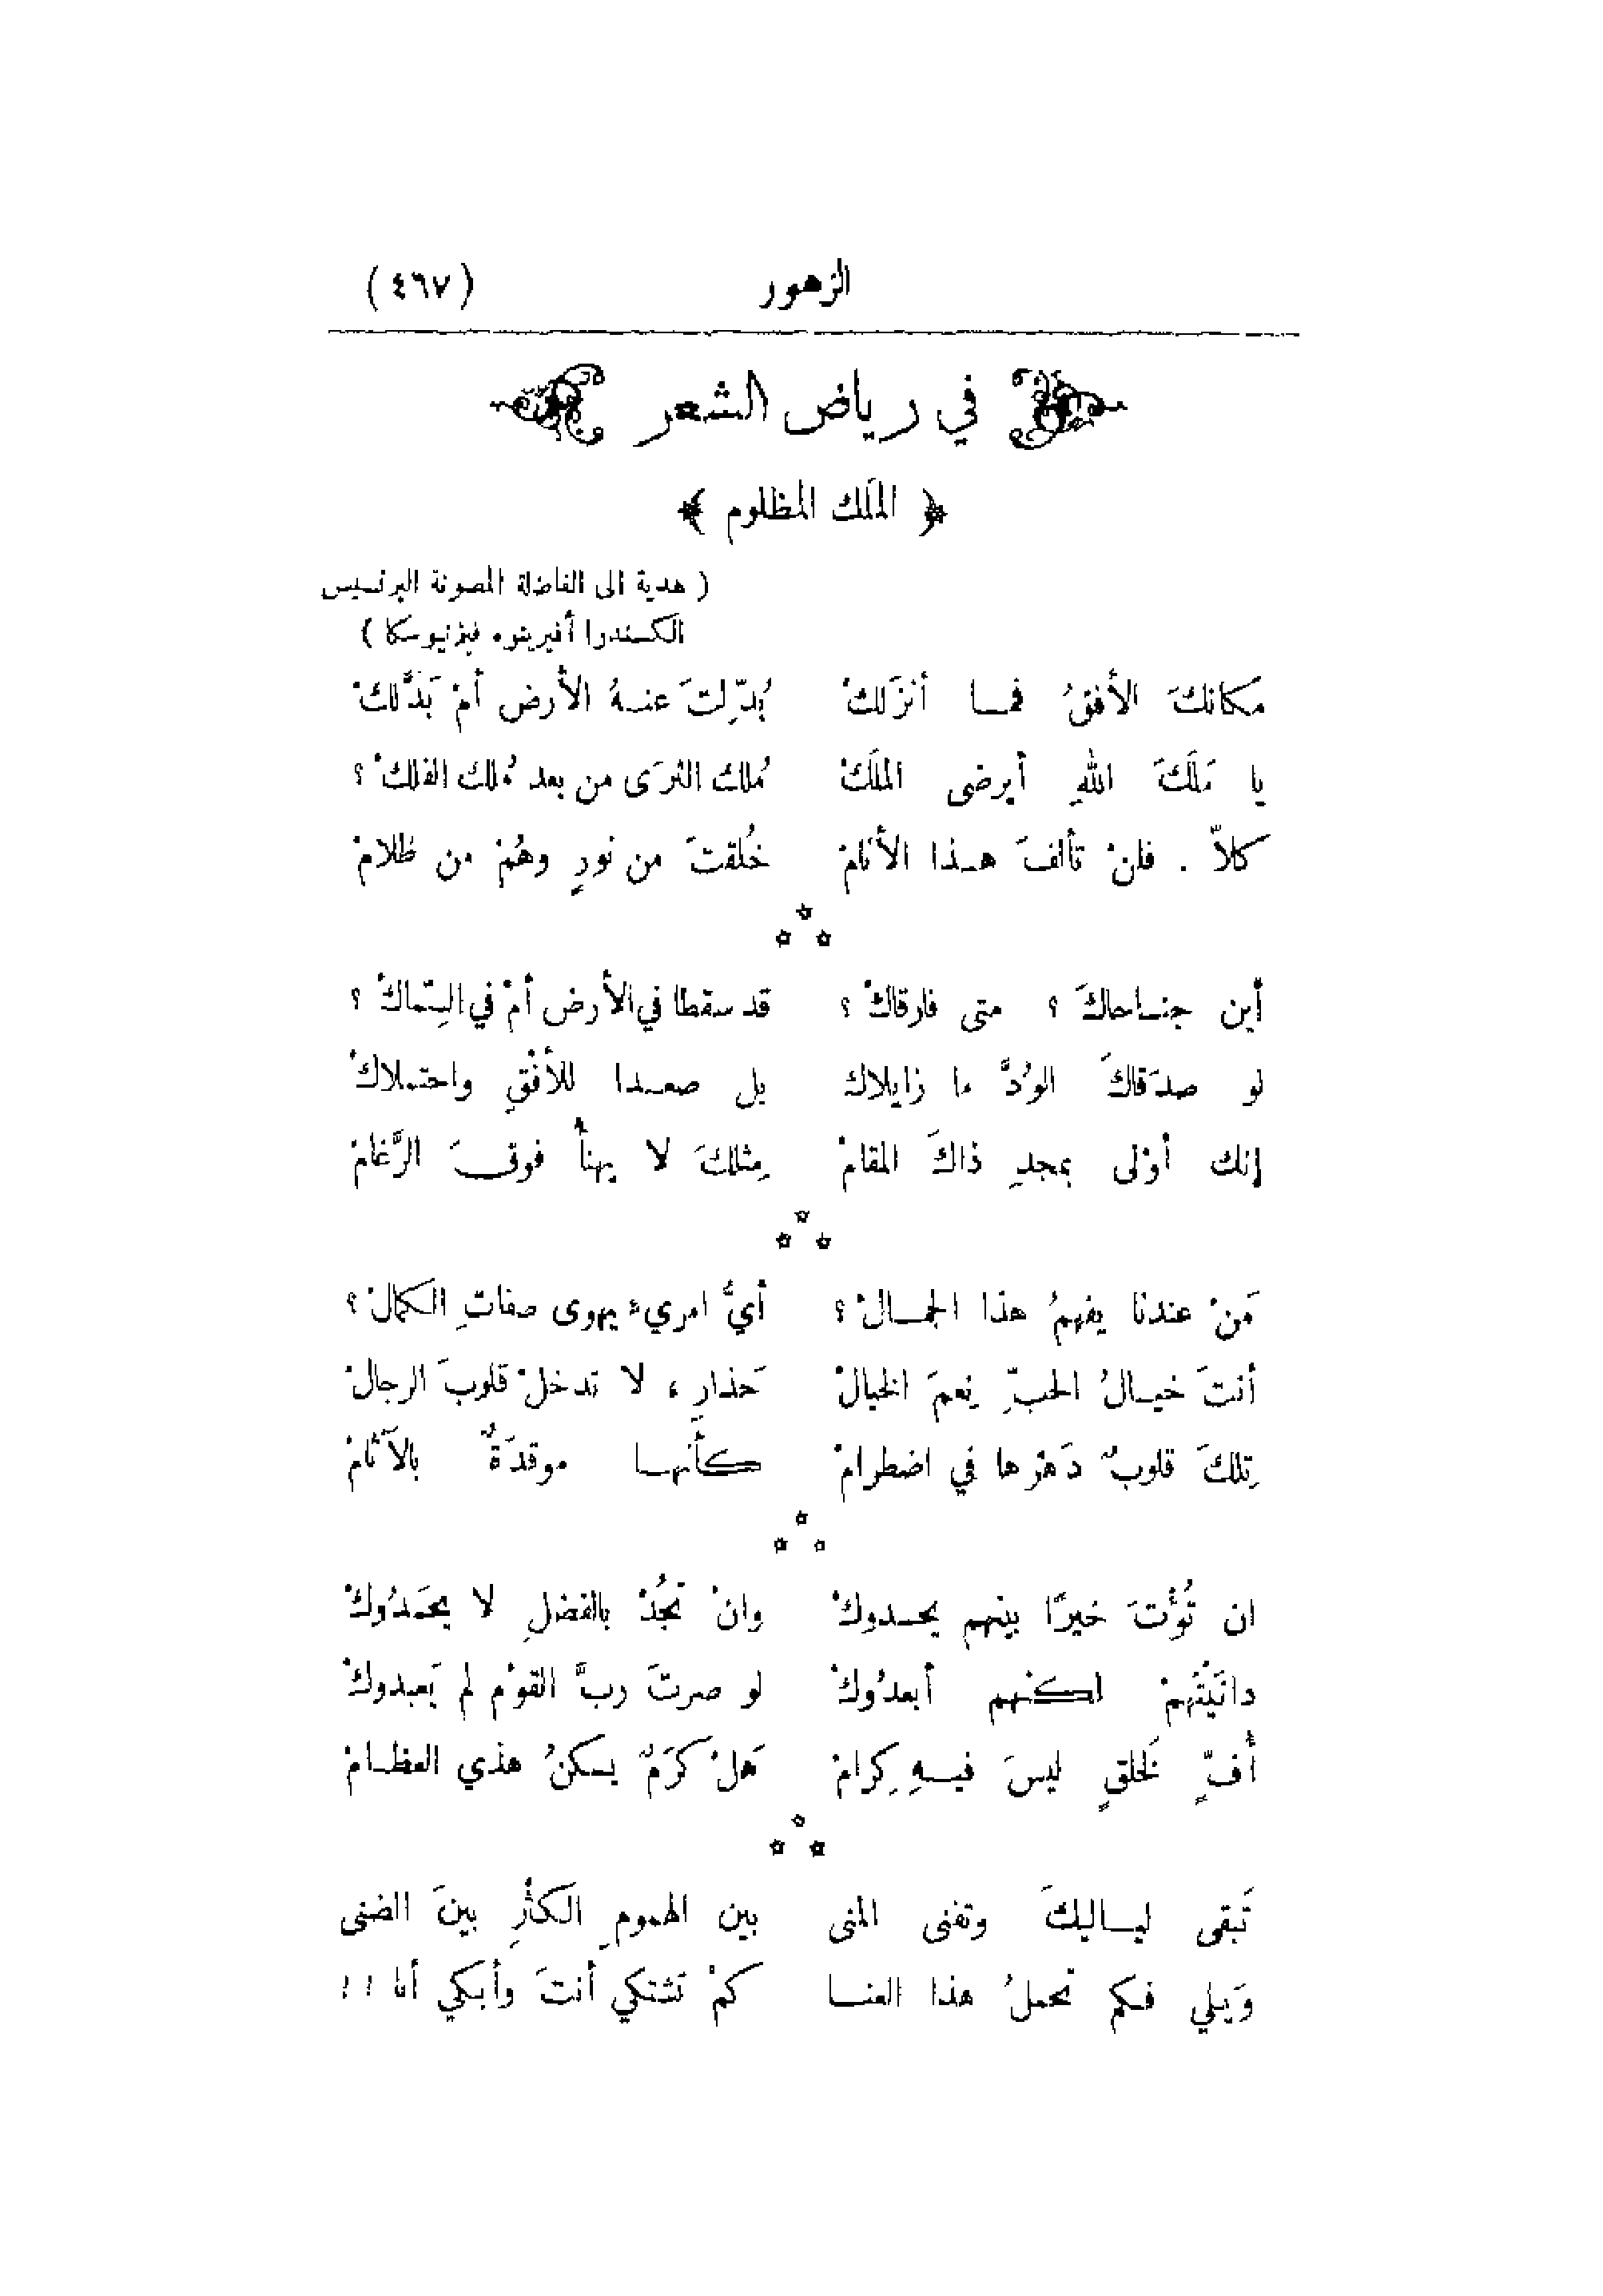 الزهور (٤٦٧)
في رياض الشعر
﴿ الملَك المظلوم ﴾
( هدية الى الفاضلة المصونة البرنسيس
الكسندرا أفيرينوه فيزنيوسكا )
مكانكَ الأفقُ فمـا أنزَلكْ بُدّلِتَ عنـهُ الأرض أمْ بَدَّلكْ
يا مَلَكَ اللّٰهِ أيرضى الملَكْ مُلك الثرَى من بعد مُلك الفلكْ ؟
كلاّ . فلنْ تألفَ هـذا الأنامْ خُلقتَ من نورٍ وهُمْ من ظلامْ
أين جنـاحاكَ ؟ متى فارقاكْ ؟ قد سقطا في الأرض أمْ في السِّماكْ ؟
لو صدَقاكَ الوُدَّ ما زايلاك بل صعـدا للأفْقِ واحتملاكْ
إنك أوْلى بمجدِ ذاكَ المقامْ مِثلكَ لا يهنأُ فوقـَ الرَّغامْ
مَنْ عندنا يفهمُ هذا الجمـالْ ؟ أيُّ امريء يهوى صفاتِ الكمالْ ؟
أنتَ خيـالُ الحبِّ نِعمَ الخيالْ حَذارِ ، لا تدخلْ قلوبَ الرجالْ
تِلكَ قلوبٌ دَهْرها في اضطرامْ كأنهـا موقدَةٌ بالآثامْ
ان تُؤْتَ خيرًا بينهم يحسدوكْ وانْ تَجُدْ بالفضلِ لا يحمَدُوكْ
دانَيْتَهمْ لكنهم أبعدُوكْ لو صرتَ ربَّ القوْم لم يَعبدوكْ
أُفٍّ لَخلقٍ ليسَ فيـهِ كِرامْ هَلْ كرَمٌ يسكنُ هذي العظـامْ
تَبقى ليـاليكَ وتفنى المنى بين الهمومِ الكثْرِ بينَ الضنى
وَيـلي فـكم تحملُ هذا العنـا كمْ تشتكي أنتَ وأبكي أنا ! !